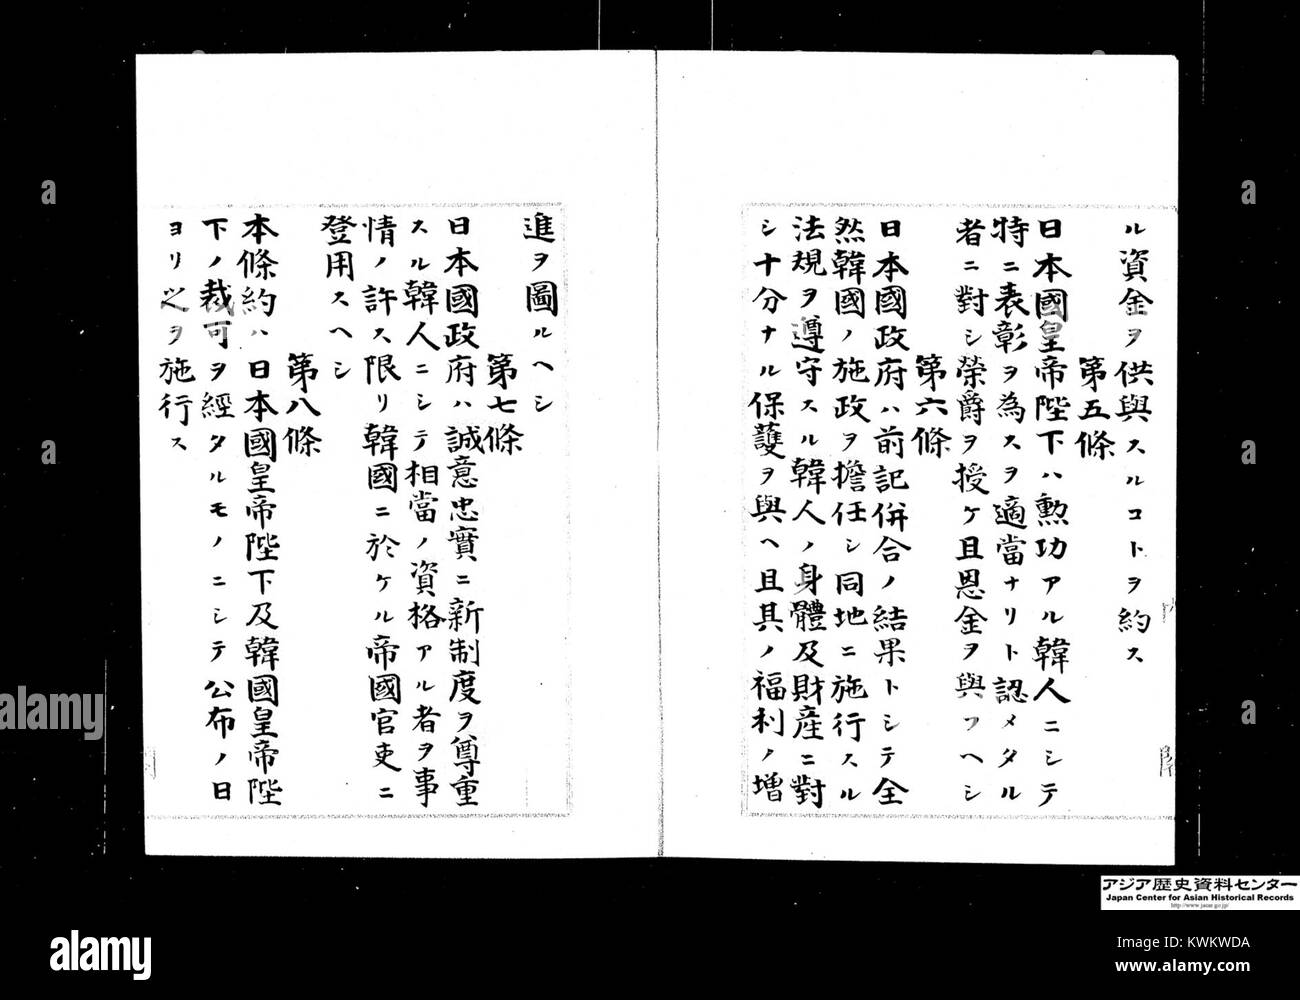 ル資金ヲ供與スルコトヲ約ス
第五條
日本國皇帝陛下ハ勲功アル韓人ニシテ
特ニ表彰ヲ為スヲ適當ナリト認メタル
者ニ對シ榮爵ヲ授ケ且恩金ヲ與フヘシ
第六條
日本國政府ハ前記併合ノ結果トシテ全
然韓國ノ施政ヲ擔任シ同地ニ施行スル
法規ヲ遵守スル韓人ノ身體及財産ニ對
シ十分ナル保護ヲ與ヘ且其ノ福利ノ増
進ヲ圖ルヘシ
第七條
日本國政府ハ誠意忠實ニ新制度ヲ尊重
スル韓人ニシテ相當ノ資格アル者ヲ事
情ノ許ス限リ韓國ニ於ケル帝國官吏ニ
登用スヘシ
第八條
本條約ハ日本國皇帝陛下及韓國皇帝陛
下ノ裁可ヲ經タルモノニシテ公布ノ日
ヨリ之ヲ施行ス
アジア歴史資料センター
Japan Center for Asian Historical Records
http://www.jacar.go.jp/
a
a
a
a
a
a
alamy
alamy
Image ID: KWKWDA
www.alamy.com